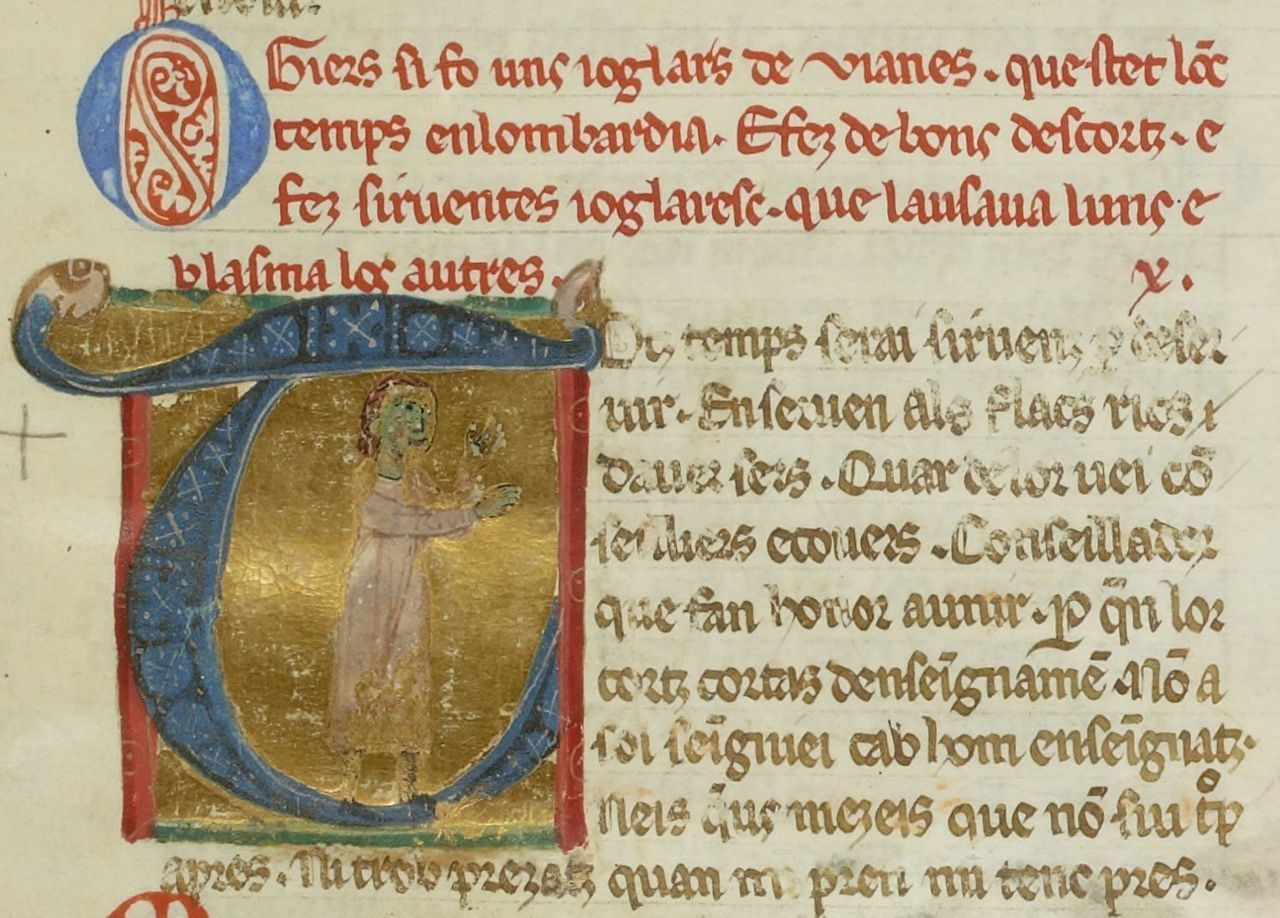 OGiers si fo uns ioglars de vianes. que stet lōc
temps enlombardia. E fez de bons descortz. e
fez siruentes ioglaresc. que lausaua luns e
blasma los autres.
x.
Totz temps serai siruenz p deser
uir. En seruen als flacs rics
dauer sers. Quar de lor uei cō
seilliers ecouers. Conseillador
que fan honor aunir. p qn lor
cortz cortas denseignamē. Nō a
soi seignuei cab hom enseignatz.
Neis qus mezeis que nō sui trop
apres. Ni trob prezatz quan m pren ni tenc pres.